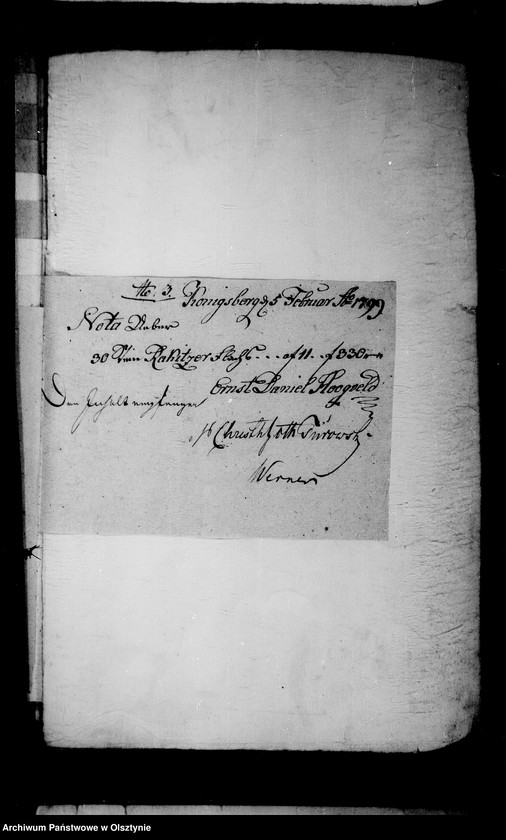 No. 3. Königsberg d 5 Februar Ao 1799
Nota Ueber
30 Rakitzer Flachs - - - af 11. - f 330
Ernst Daniel Hoogveld
Den Inhalt empfangen
Christh Gottl Turowsk
Werner
Archiwum Państwowe w Olsztynie